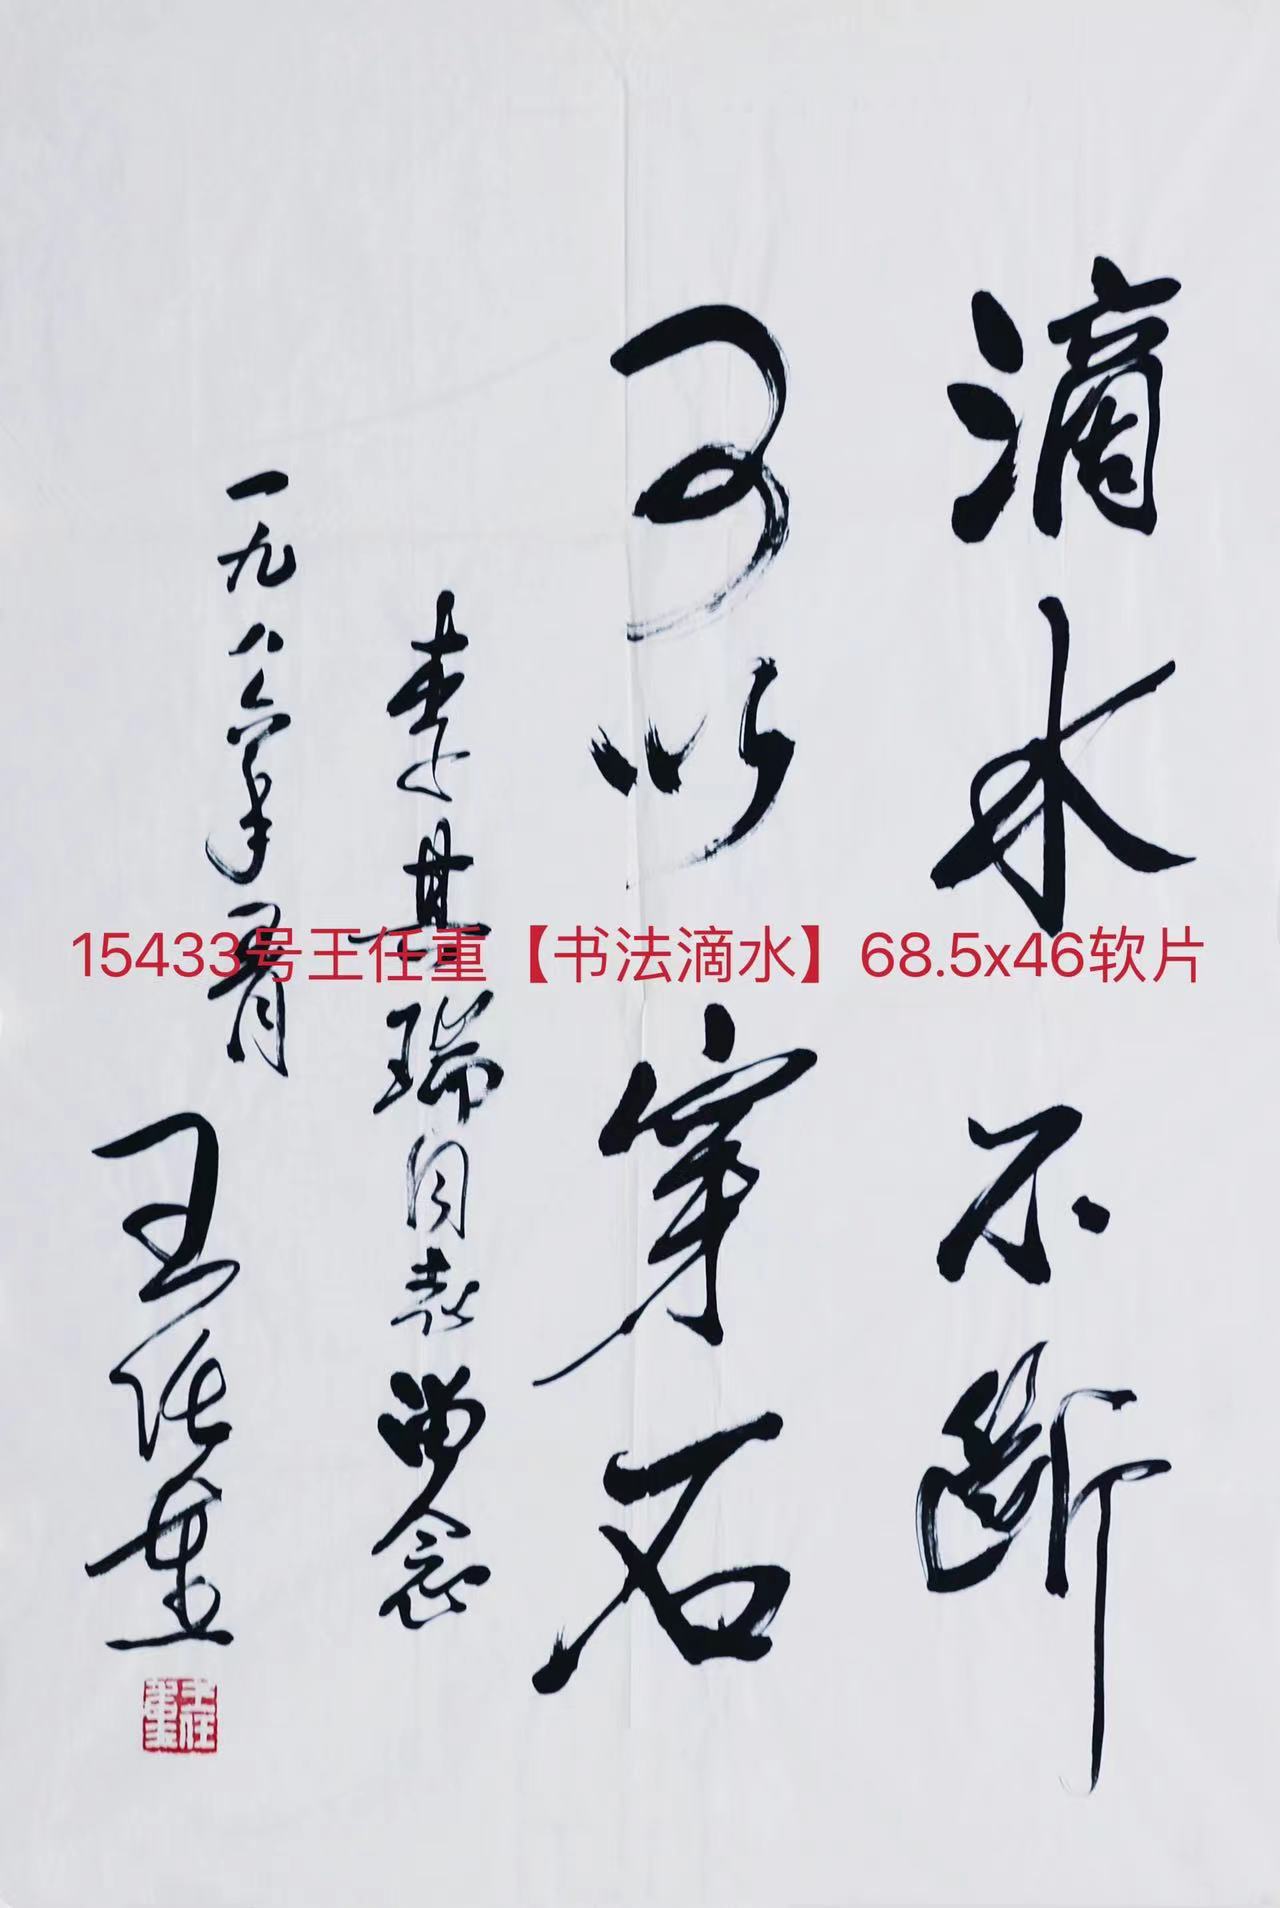 滴水不断
可以穿石
李其瑞同志留念
一九八六年一月
王任重
王任重
15433号王任重【书法滴水】68.5x46软片